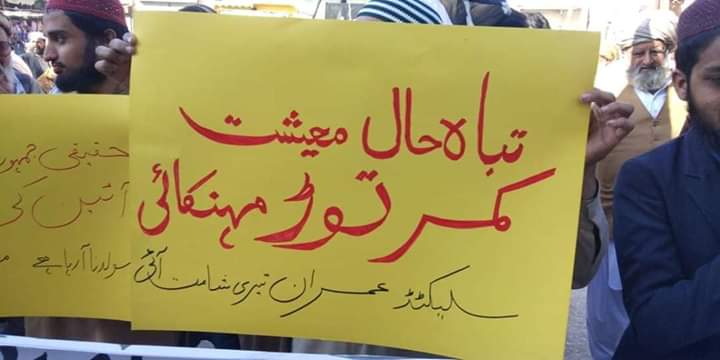 تباہ حال معیشت
کمر توڑ مہنگائی
سلیکٹڈ عمران تیری شامت آئی
حقیقی جمہور
آئین کی
سولہ آرہا ہے